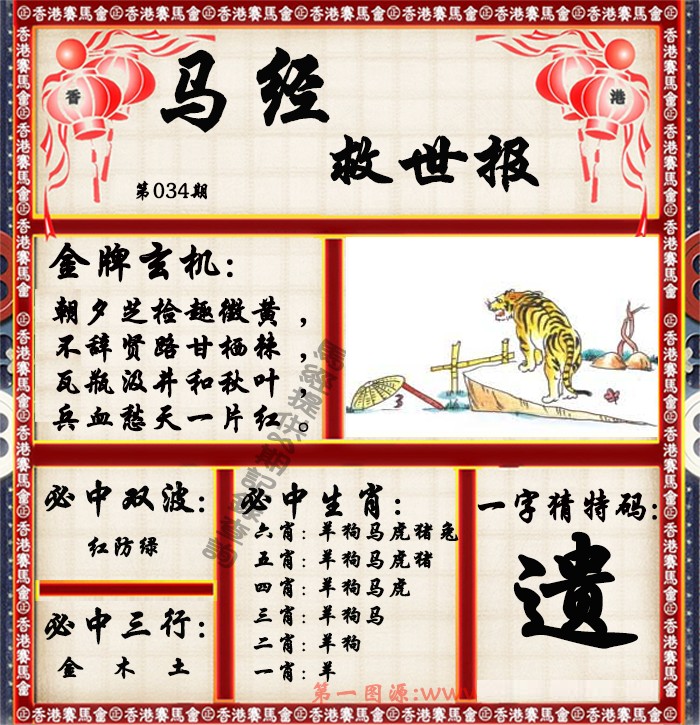 香港賽馬會
香 港
马经
救世报
第034期
金牌玄机:
朝夕芝拾趣微黄，
不辞贤路甘栖棘，
瓦瓶汲井和秋叶，
兵血愁天一片红。
3
必中双波:
红防绿
必中三行:
金 木 土
必中生肖:
六肖: 羊狗马虎猪兔
五肖: 羊狗马虎猪
四肖: 羊狗马虎
三肖: 羊狗马
二肖: 羊狗
一肖: 羊
一字猜特码:
遗
第一图源:www